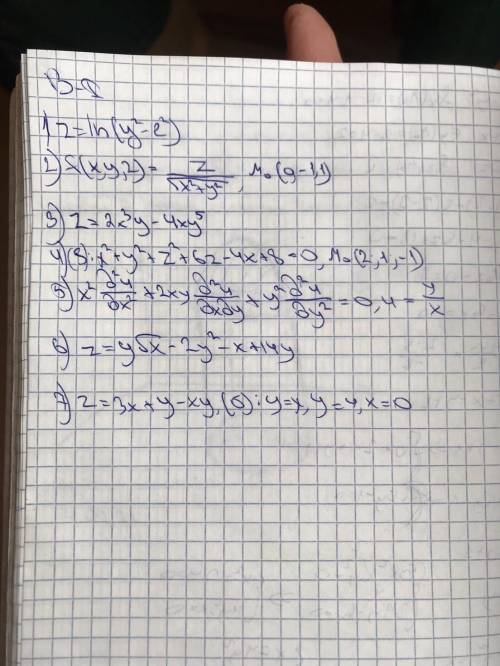 В-8
1) z=ln(y²-e²)
2) f(x,y,z)= z/√x²+y², M₀(0,-1,1)
3) z=2x³y-4xy⁵
4) (S): x²+y²+z²+6z-4x+8=0, M₀(2,1,-1)
5) x² ∂²u/∂x² +2xy ∂²u/∂x∂y + y² ∂²u/∂y² =0, u= y/x
6) z=y√x-2y²-x+14y
7) z=3x+y-xy, (D): y=x, y=4, x=0